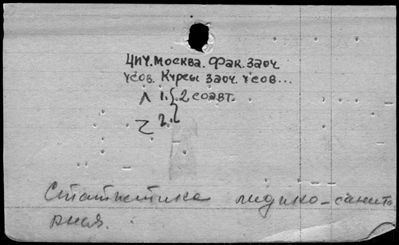 ЦИУ. Москва. Фак. заоч.
усов. Курсы заоч. усов...
Л 1. } 2 соавт.
2. }
Статистика медико-санитар
рная.